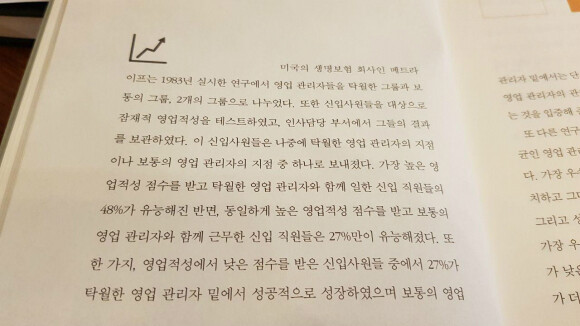 미국의 생명보험 회사인 메트라
이프는 1983년 실시한 연구에서 영업 관리자들을 탁월한 그룹과 보
통의 그룹, 2개의 그룹으로 나누었다. 또한 신입사원들을 대상으로
잠재적 영업적성을 테스트하였고, 인사담당 부서에서 그들의 결과
를 보관하였다. 이 신입사원들은 나중에 탁월한 영업 관리자의 지점
이나 보통의 영업 관리자의 지점 중 하나로 보내졌다. 가장 높은 영
업적성 점수를 받고 탁월한 영업 관리자와 함께 일한 신입 직원들의
48%가 유능해진 반면, 동일하게 높은 영업적성 점수를 받고 보통의
영업 관리자와 함께 근무한 신입 직원들은 27%만이 유능해졌다. 또
한 가지, 영업적성에서 낮은 점수를 받은 신입사원들 중에서 27%가
탁월한 영업 관리자 밑에서 성공적으로 성장하였으며 보통의 영업
관리자 밑에서는 단
영업 관리자의 관
는 것을 입증해
또 다른 연구
균인 영업 관리
다. 가장 우
치하고 그다
그리고 성
가장 우
가 낮은
가 더